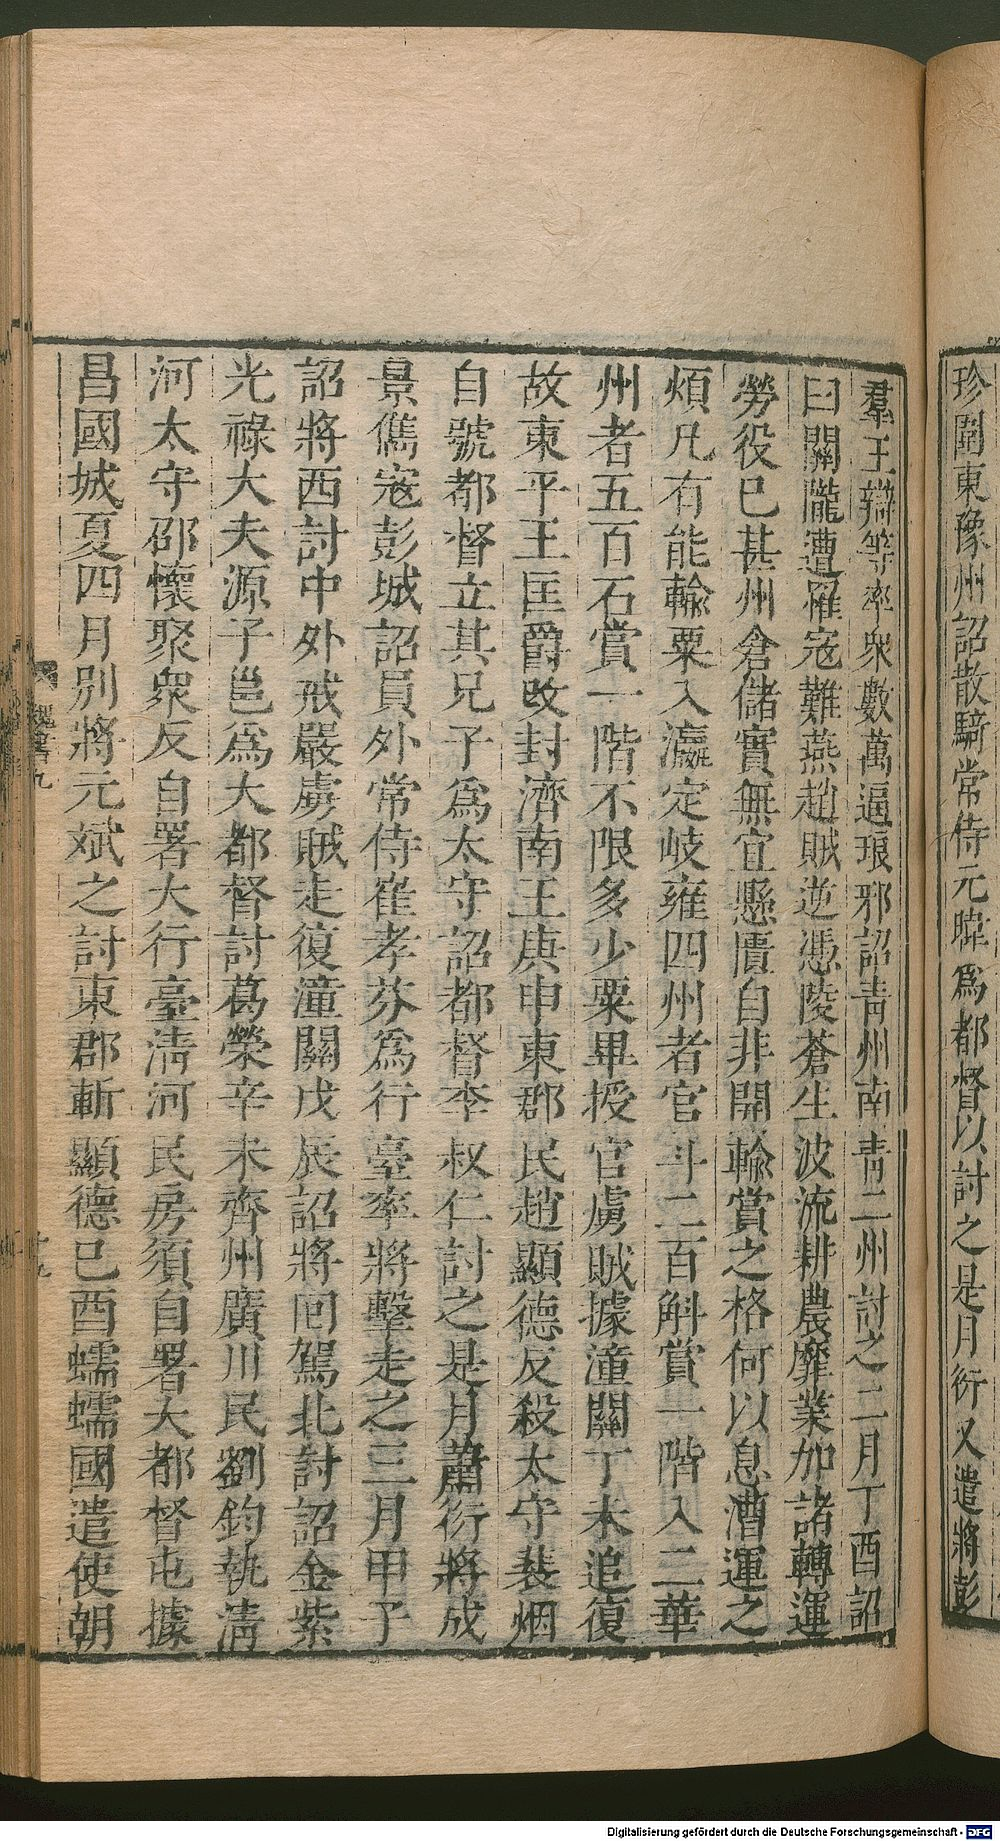 珍圍東豫州詔散騎常侍元暐爲都督以討之是月衍又遣將彭
羣王辯等率衆數萬逼琅邪詔青州南青二州討之二月丁酉詔
曰關隴遭罹寇難燕趙賊逆憑陵蒼生波流耕農靡業加諸轉運
勞役已甚州倉儲實無宜懸匱自非開輸賞之格何以息漕運之
煩凡有能輸粟入瀛定岐雍四州者官斗二百斛賞一階入二華
州者五百石賞一階不限多少粟畢授官虜賊據潼關丁未追復
故東平王匡爵改封濟南王庚申東郡民趙顯德反殺太守裴烟
自號都督立其兄子爲太守詔都督李叔仁討之是月蕭衍將成
景儁寇彭城詔員外常侍崔孝芬爲行臺率將擊走之三月甲子
詔將西討中外戒嚴虜賊走復潼關戊辰詔將回駕北討詔金紫
光祿大夫源子邕爲大都督討葛榮辛未齊州廣川民劉鈞執清
河太守邵懷聚衆反自署大行臺清河民房須自署大都督屯據
昌國城夏四月別將元斌之討東郡斬顯德己酉蠕蠕國遣使朝
魏書九
Digitalisierung gefördert durch die Deutsche Forschungsgemeinschaft - DFG